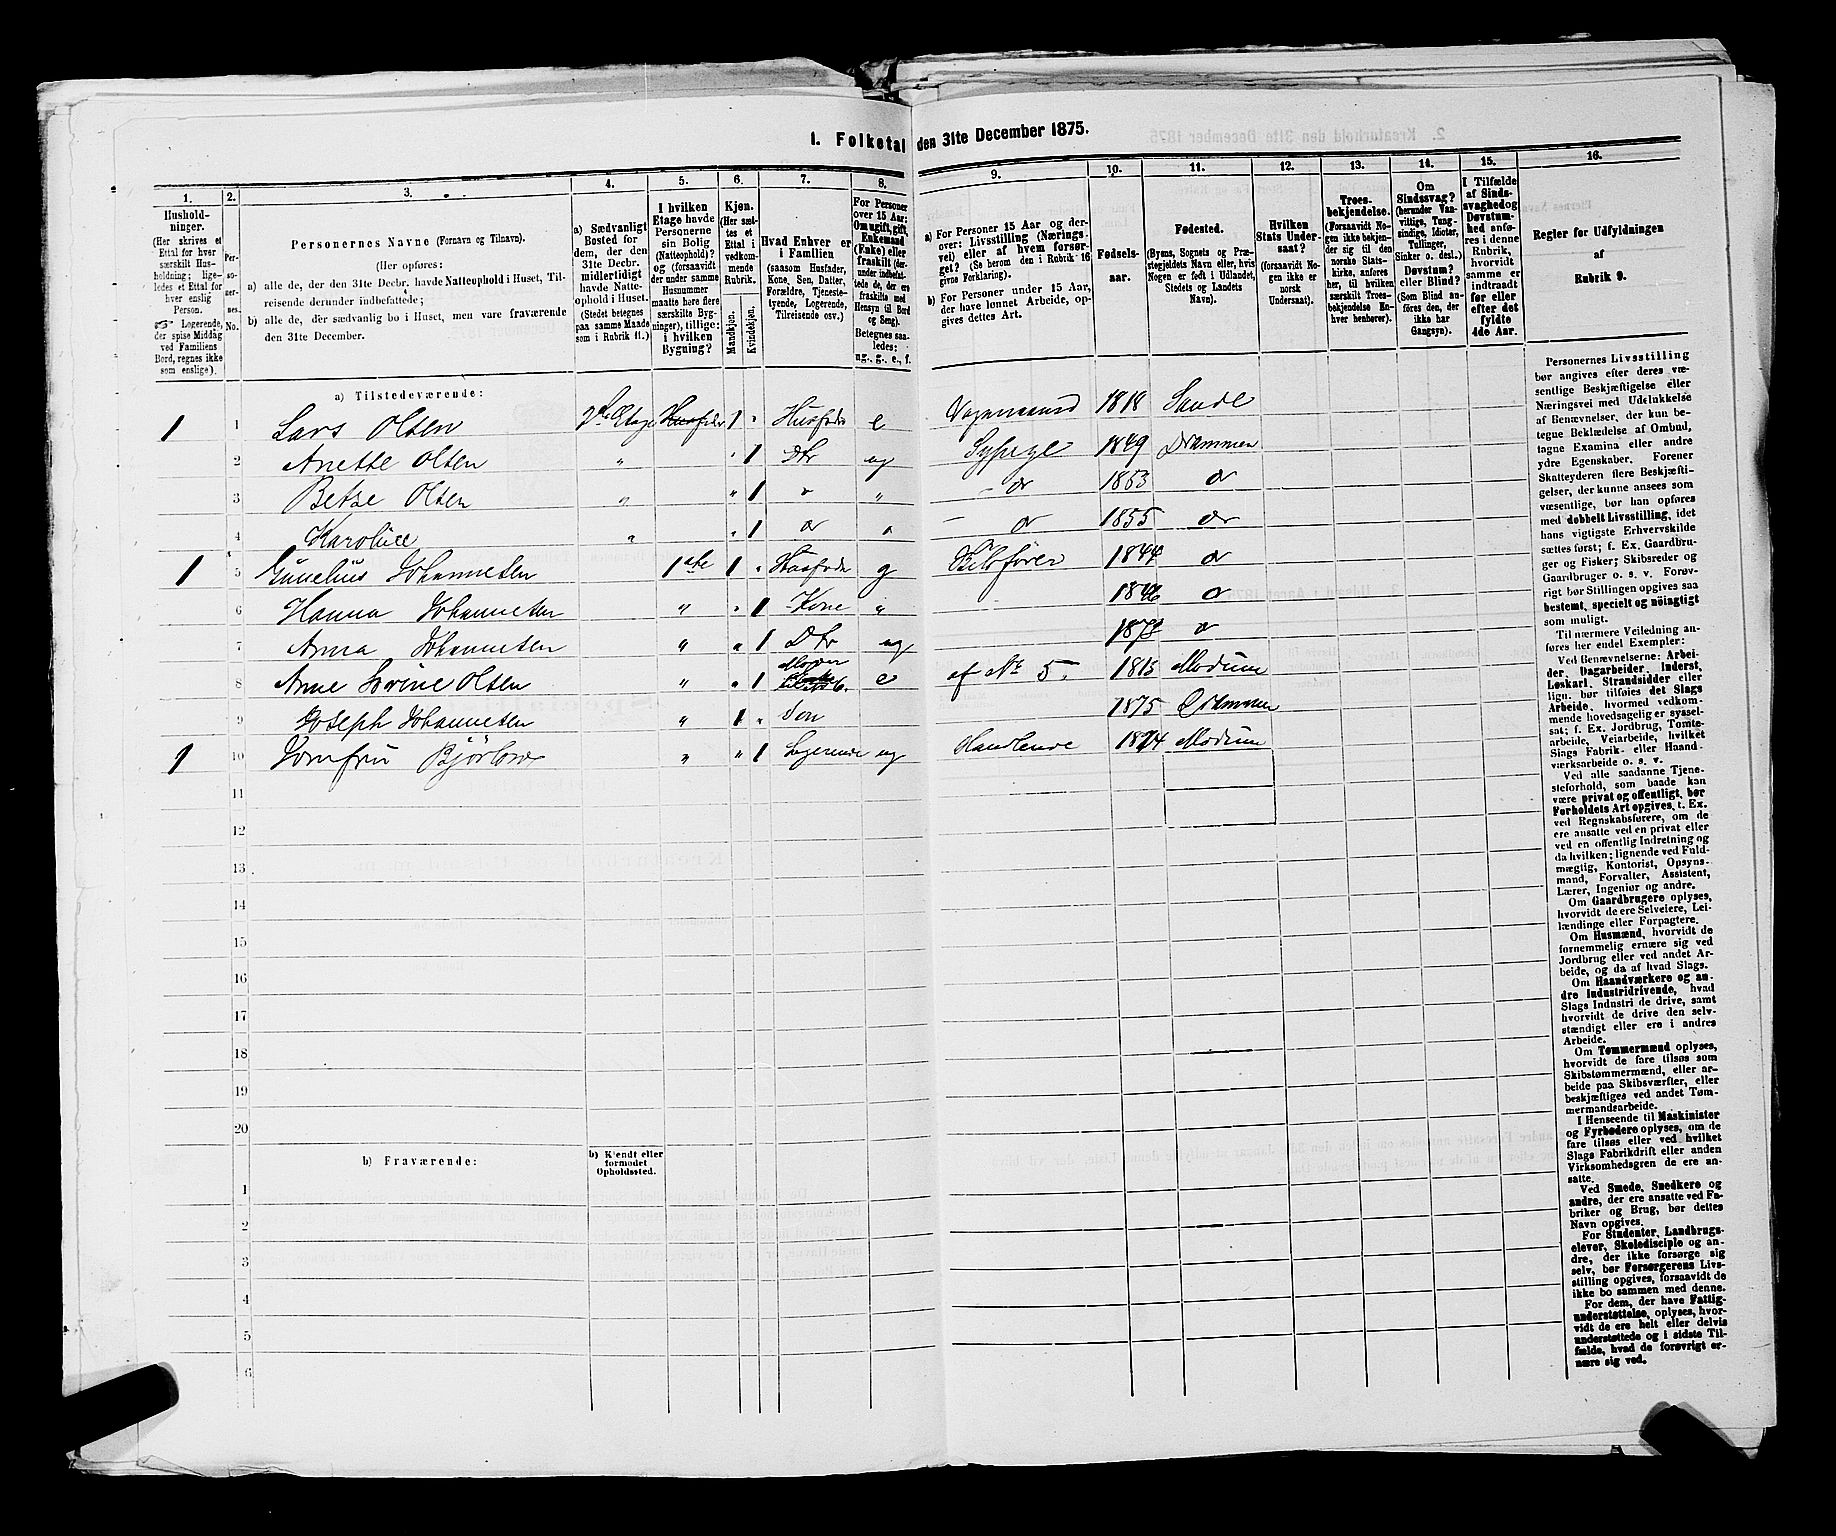 1. Folketal den 31te December 1875.
1.
Husholdninger.
(Her skrives et
Ettal for hver
særskilt Husholdning;
ligeledes et Ettal for
hver enslig
Person.
Logerende,
der spise Middag
ved Familiens
Bord, regnes ikke
som enslige).
2.
Personernes No.
3.
Personernes Navne (Fornavn og Tilnavn).
(Her opføres:
a) alle de, der den 31te Decbr. havde Natteophold i Huset, Tilreisende derunder indbefattede;
b) alle de, der sædvanlig bo i Huset, men vare fraværende
den 31te December.
4.
a) Sædvanligt
Bosted for
dem, der den
31te Decbr.
midlertidigt
havde Natteophold i Huset.
(Stedet betegnes
paa samme Maade
som i Rubrik 11.)
5.
I hvilken
Etage havde
Personerne
sin Bolig
(Natteophold)?
og (forsaavidt
der under samme
Husnummer
maatte høre flere
særskilte Bygninger), tillige:
i hvilken
Bygning?
6.
Kjøn.
(Her sættes et
Ettal i
vedkommende
Rubrik.
Mandkjøn.
Kvindekjøn.
7.
Hvad Enhver er
i Familien
(saasom Husfader,
Kone, Søn, Datter,
Forældre, Tjenestetyende, Logerende,
Tilreisende osv.)
8.
For Personer
over 15 Aar:
Om ugift, gift,
Enkemand
(Enke) eller
fraskilt
Betegnes saaledes:
ug., g., e., f.
9.
a) For Personer 15 Aar og derover: Livsstilling (Næringsvei) eller af hvem forsørget? (Se herom den i Rubrik 16
givne Forklaring).
b) For Personer under 15 Aar,
der have lønnet Arbeide, opgives dettes Art.
10.
Fødselsaar.
11.
Fødested.
(Byens, Sognets og Præstegjeldets Navn eller, hvis
Nogen er født i Udlandet,
Stedets og Landets
Navn).
12.
Hvilken
Stats Undersaat?
(forsaavidt Nogen ikke er
norsk
Undersaat).
13.
Troesbekjendelse.
(Forsaavidt Nogen ikke bekjender sig til den
norske Statskirke, anføres
her, til hvilken
særskilt Troesbekjendelse Enhver henhører).
14.
Om
Sindssvag?
(herunder Vanvittige, Tungsindige, Idioter,
Tullinger,
Sinker o. desl.).
Døvstum?
eller Blind?
(Som Blind anføres den, der
ikke har
Gangsyn).
15.
I Tilfælde
af Sindssvaghed og
Døvstumhed anføres i denne
Rubrik,
hvorvidt
samme er
indtraadt
før eller
efter det
fyldte
4de Aar.
16.
Regler for Udfyldningen
af
Rubrik 9.
a) Tilstedeværende:
1 1 Lars Olsen 2den Etage Husfader 1 " Husfader e Vognmand 1818 Sande
2 Anette Olsen " " 1 Dtr ug Sypige 1849 Drammen
3 Betze Olsen " " 1 " " - do 1853 do
4 Karoline " " 1 do " - do 1855 do
1 5 Gunelius Johannesen 1ste 1 " Husfader g 1844 do
6 Hanna Johannesen " " 1 Kone " 1846 do
7 Anna Johannesen " " 1 Dtr ug do
8 Anne Lovine Olsen " " 1 Moder e af No 5. 1813 Modum
9 Joseph Johannesen " 1 " Søn 1875 Drammen
1 10 Jomfru " " 1 Logerende ug Handlende Modum
11
12
13
14
15
16
17
18
19
20
b) Fraværende:
b) Kjendt eller
formodet
Opholdssted.
1
2
3
4
5
6
Personernes Livsstilling
bør angives efter deres væsentlige Beskjæftigelse eller
Næringsvei med Udelukkelse
af Benævnelser, der kun betegne Beklædelse af Ombud,
tagne Examina eller andre
ydre Egenskaber. Forener
Skatteyderen flere Beskjæftigelser, der kunne ansees som
væsentlige, bør han opføres
med dobbelt Livsstilling, idet
hans vigtigste Erhvervskilde
sættes først; f. Ex. Gaardbruger og Fisker; Skibsreder og
Gaardbruger o. s. v. Forøvrigt bør Stillingen opgives saa
bestemt, specielt og nøiagtigt
som muligt.
Til nærmere Veiledning anføres her endel Exempler:
Ved Benævnelserne: Arbeider, Dagarbeider, Inderst,
Løskarl, Strandsidder eller
lign. bør tilføies det Slags
Arbeide, hvormed vedkommende hovedsagelig er sysselsat; f. Ex. Jordbrug, Tomtearbeide, Veiarbeide, hvilket
Slags Fabrik- eller Haandværksarbeide o. s. v.
Ved alle saadanne Tjenesteforhold, som baade kan
være privat og offentligt, bør
Forholdets Art opgives, t. Ex.
ved Regnskabsførere, om de
ere ansatte ved en privat eller
ved en offentlig Indretning og
da hvilken; lignende ved Fuldmægtig, Kontorist, Opsynsmand, Forvalter, Assistent,
Lærer, Ingeniør og andre.
Om Gaardbrugere oplyses,
hvorvidt de ere Selveiere, Leilændinge eller Forpagtere.
Om Husmænd, hvorvidt de
fornemmelig ernære sig ved
Jordbrug eller ved andet Arbeide, og da af hvad Slags.
Om Haandværkere og andre Industridrivende, hvad
Slags Industri de drive, samt
hvorvidt de drive den selvstændigt eller ere i andres
Arbeide.
Om Tømmermænd oplyses,
hvorvidt de fare tilsøs som
Skibstømmermænd, eller arbeide paa Skibsværfter, eller
beskjæftiges ved andet Tømmermandsarbeide.
I Henseende til Maskinister
og Fyrbødere oplyses, om de
fare tilsøs eller ved hvilket
Slags Fabrikdrift eller anden
Virksomhedsgren de ere ansatte.
Ved Smede, Snedkere og
andre, der ere ansatte ved Fabriker og Brug, bør dettes
Navn opgives.
For Studenter, Landbrugselever, Skoledisciple og andre, der ikke forsørge sig
selv, bør Forsørgerens Livsstilling opgives, forsaavidt de
ikke bo sammen med denne.
For dem, der have Fattigunderstøttelse, oplyses, hvorvidt de ere helt eller delvis
understøttede og i sidste Tilfælde, hvad de forøvrigt ernære sig ved.